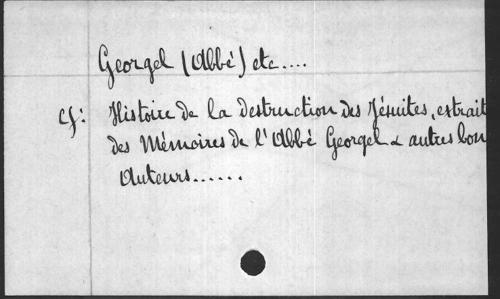 Georgel (Abbé) etc....
cf: Histoire de la destruction des Jésuites, extrait
des Mémoires de l'Abbé Georgel & autres bon
Auteurs......